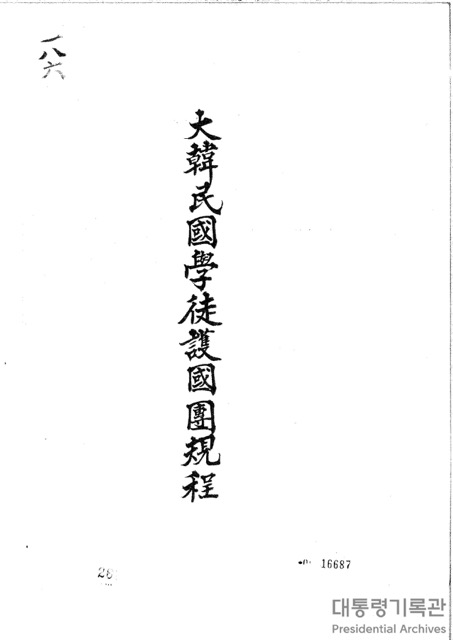 一八六
大韓民國學徒護國團規程
16687
대통령기록관
Presidential Archives